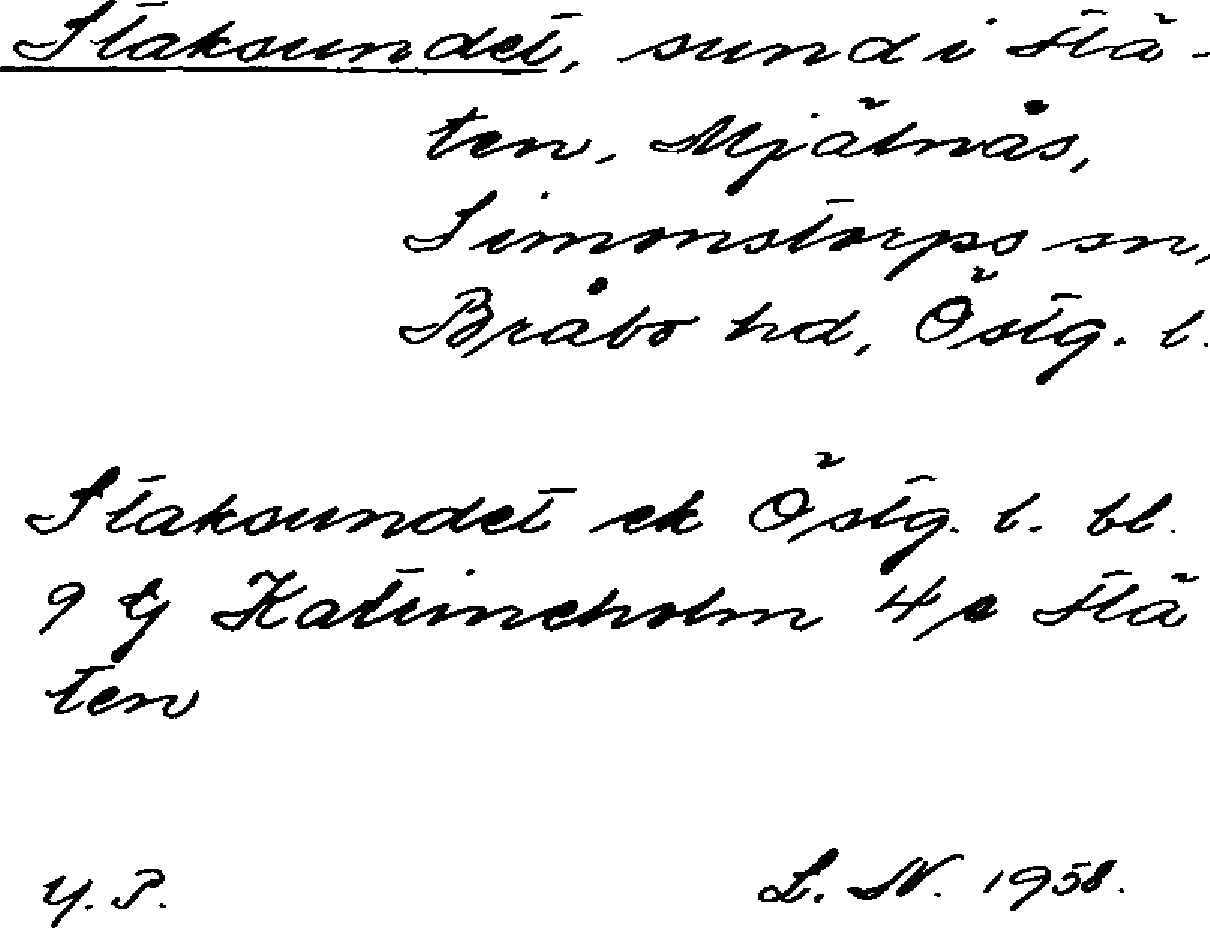 Staksundet, sund i Flä-
ten, Mjälnås,
Simonstorps sn,
Bråbo hd, Östg. l.
Staksundet ek Östg. l. bl.
9 Katrineholm 4 Flä
ten
Y. P.
L. N. 1958.